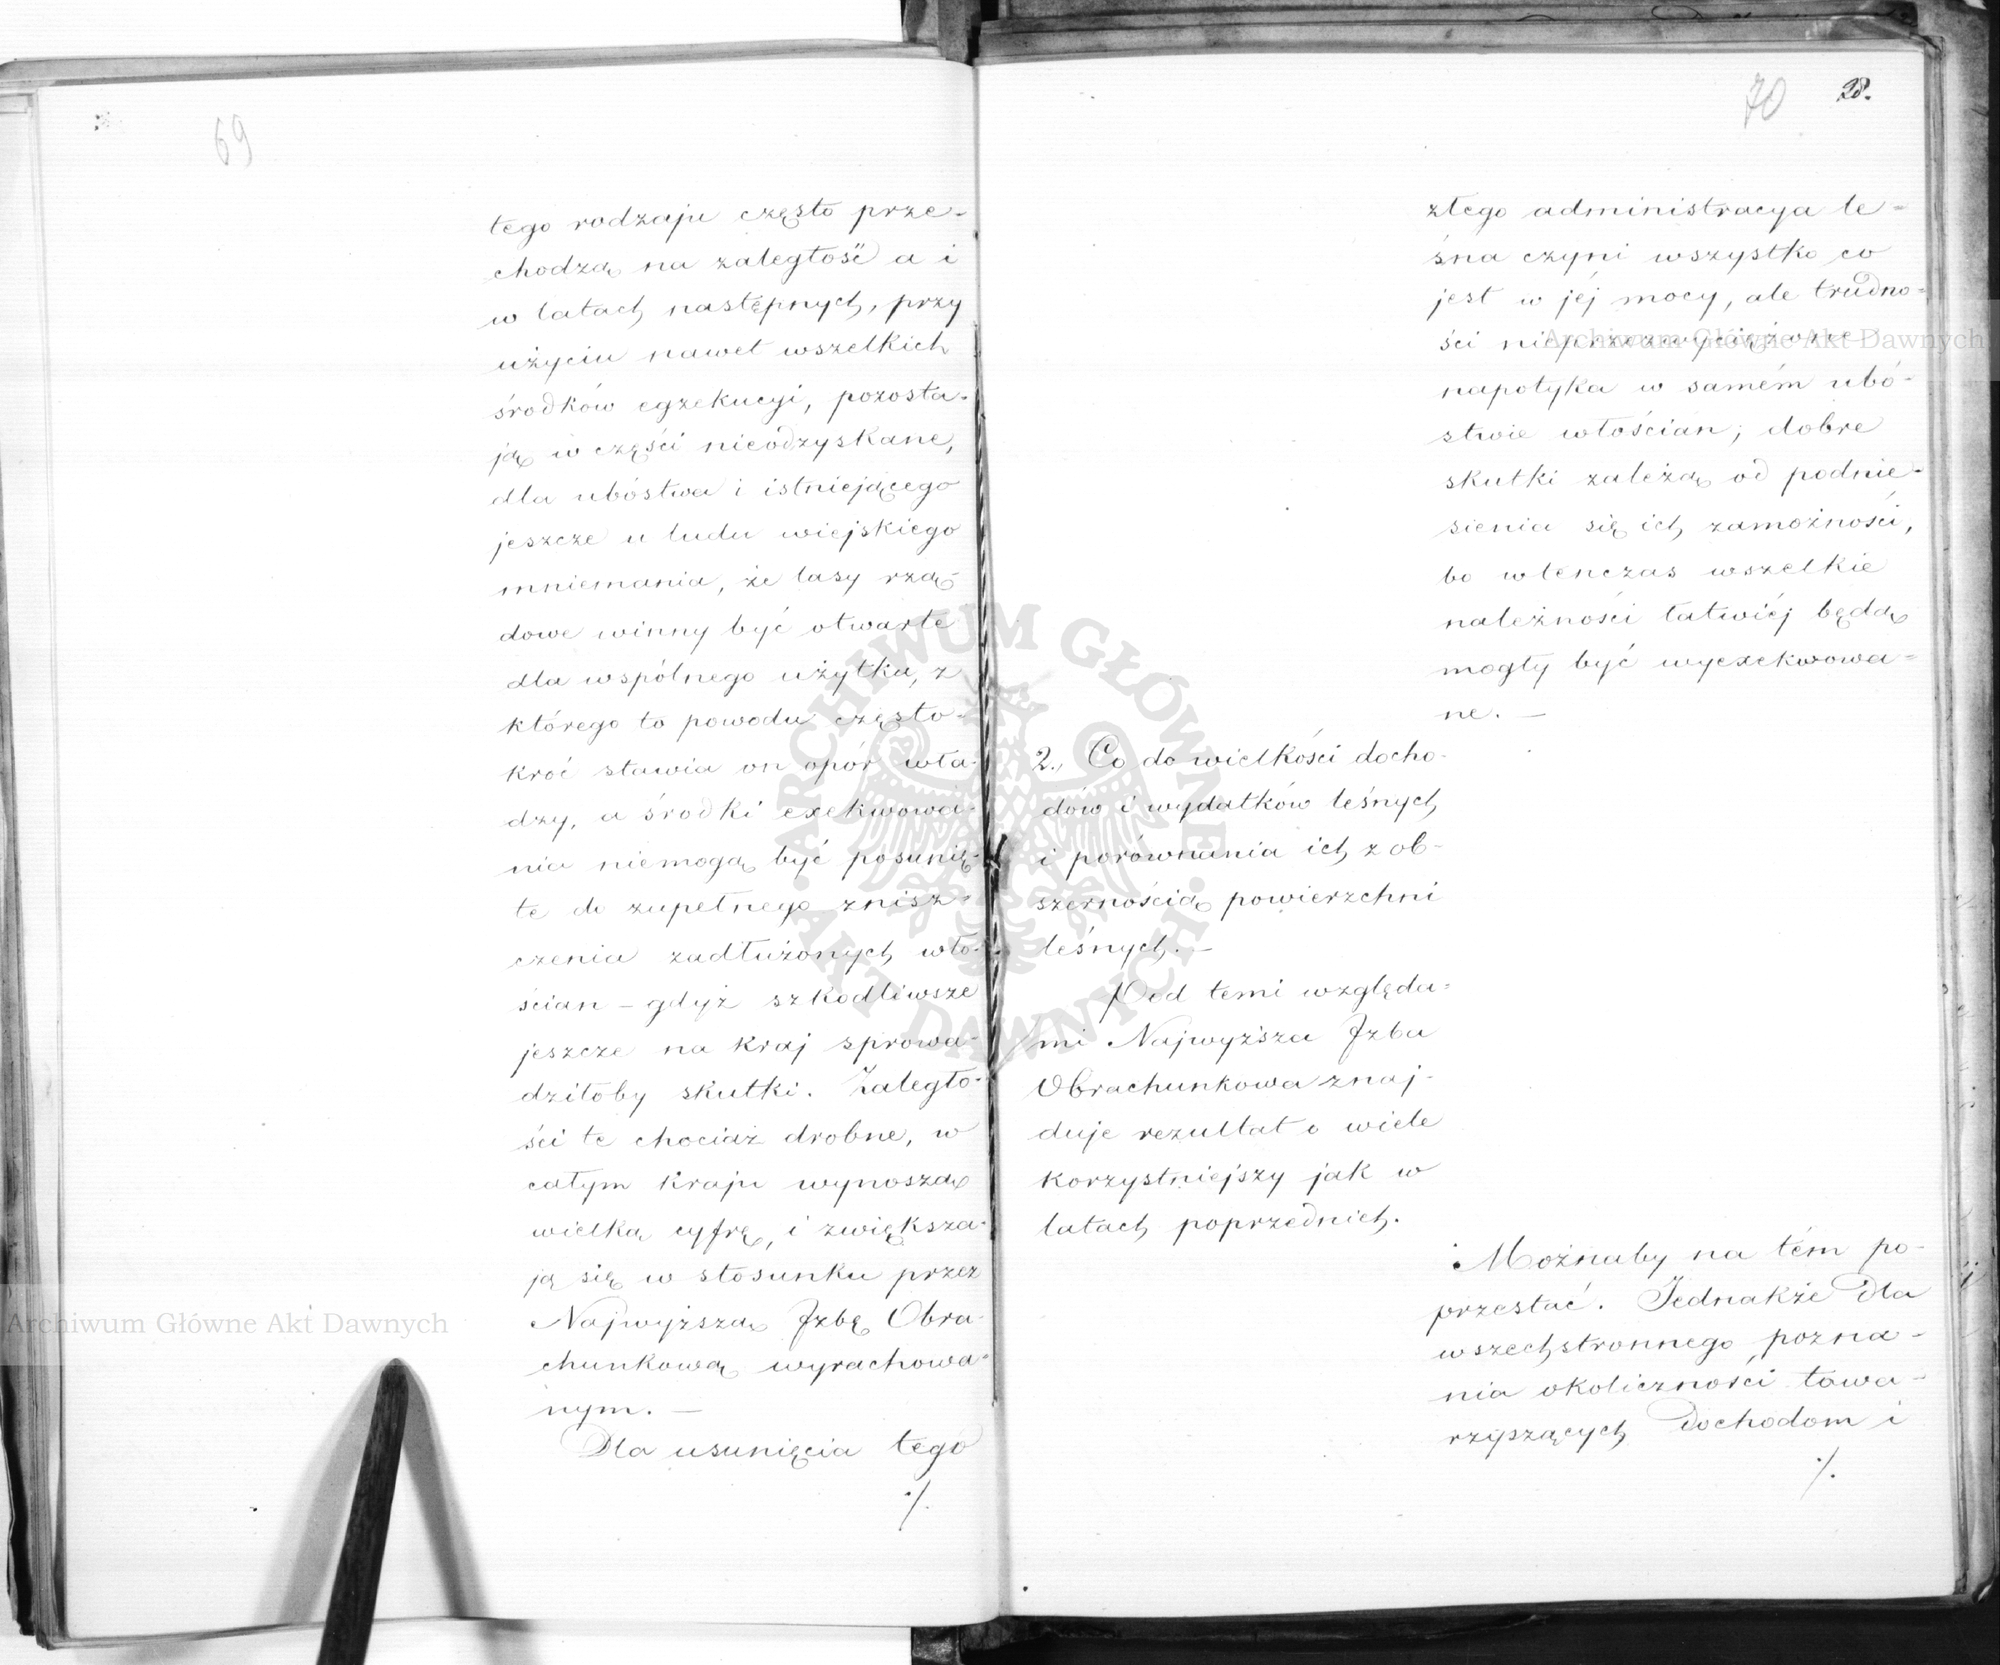 69
tego rodzaju często prze-
chodzą na zaległość a i
w latach następnych, przy
użyciu nawet wszelkich
środków egzekucyi, pozosta-
ją w części nieodzyskane,
dla ubóstwa i istniejącego
jeszcze u ludu wiejskiego
mniemania, że lasy rzą-
dowe winny być otwarte
dla wspólnego użytku, z
którego to powodu często-
kroć stawia on opór wła-
dzy, a środki exekwowa-
nia niemogą być posunię-
te do zupełnego znisz-
czenia zadłużonych wło-
ścian – gdyż szkodliwsze
jeszcze na kraj sprowa-
dziłoby skutki. Zaległo-
ści te chociaż drobne, w
całym kraju wynoszą
wielką cyfrę, i zwiększa-
ją się w stosunku przez
Najwyższą Izbę Obra-
chunkową wyrachowa-
nym. —
Dla usunięcia tego
./.
70 28.
złego administracya le-
śna czyni wszystko co
jest w jéj mocy, ale trudno-
ści nieprzezwyciężone
napotyka w samém ubó-
stwie włościan; dobre
skutki zależą od podnie-
sienia się ich zamożności,
bo wtenczas wszelkie
należności łatwiéj będą
mogły być wyexekwowa-
ne. —
2., Co do wielkości docho-
dów i wydatków leśnych
i porównania ich z ob-
szernością powierzchni
leśnych. —
Pod temi względa-
mi Najwyższa Izba
Obrachunkowa znaj-
duje rezultat o wiele
korzystniejszy jak w
latach poprzednich.
Możnaby na tém po-
przestać. Jednakże dla
wszechstronnego pozna-
nia okoliczności towa-
rzyszących dochodom i
./.
Archiwum Główne Akt Dawnych
Archiwum Główne Akt Dawnych
ARCHIWUM GŁÓWNE AKT DAWNYCH